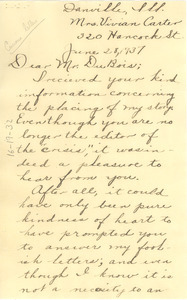 Danville, Ill.
Mrs. Vivian Carter
320 Hancock St.
June 28, 1937
Dear Mr. DuBois:
I recieved your kind
information concerning
the placing of my story.
Even though you are no
longer the editor of
"the Crisis," it was in-
deed a pleasure to
hear from you.
After all, it could
have only been pure
kindness of heart to
have prompted you
to answer my fool-
ish letters; and even
though I know it is
not a necessity to an